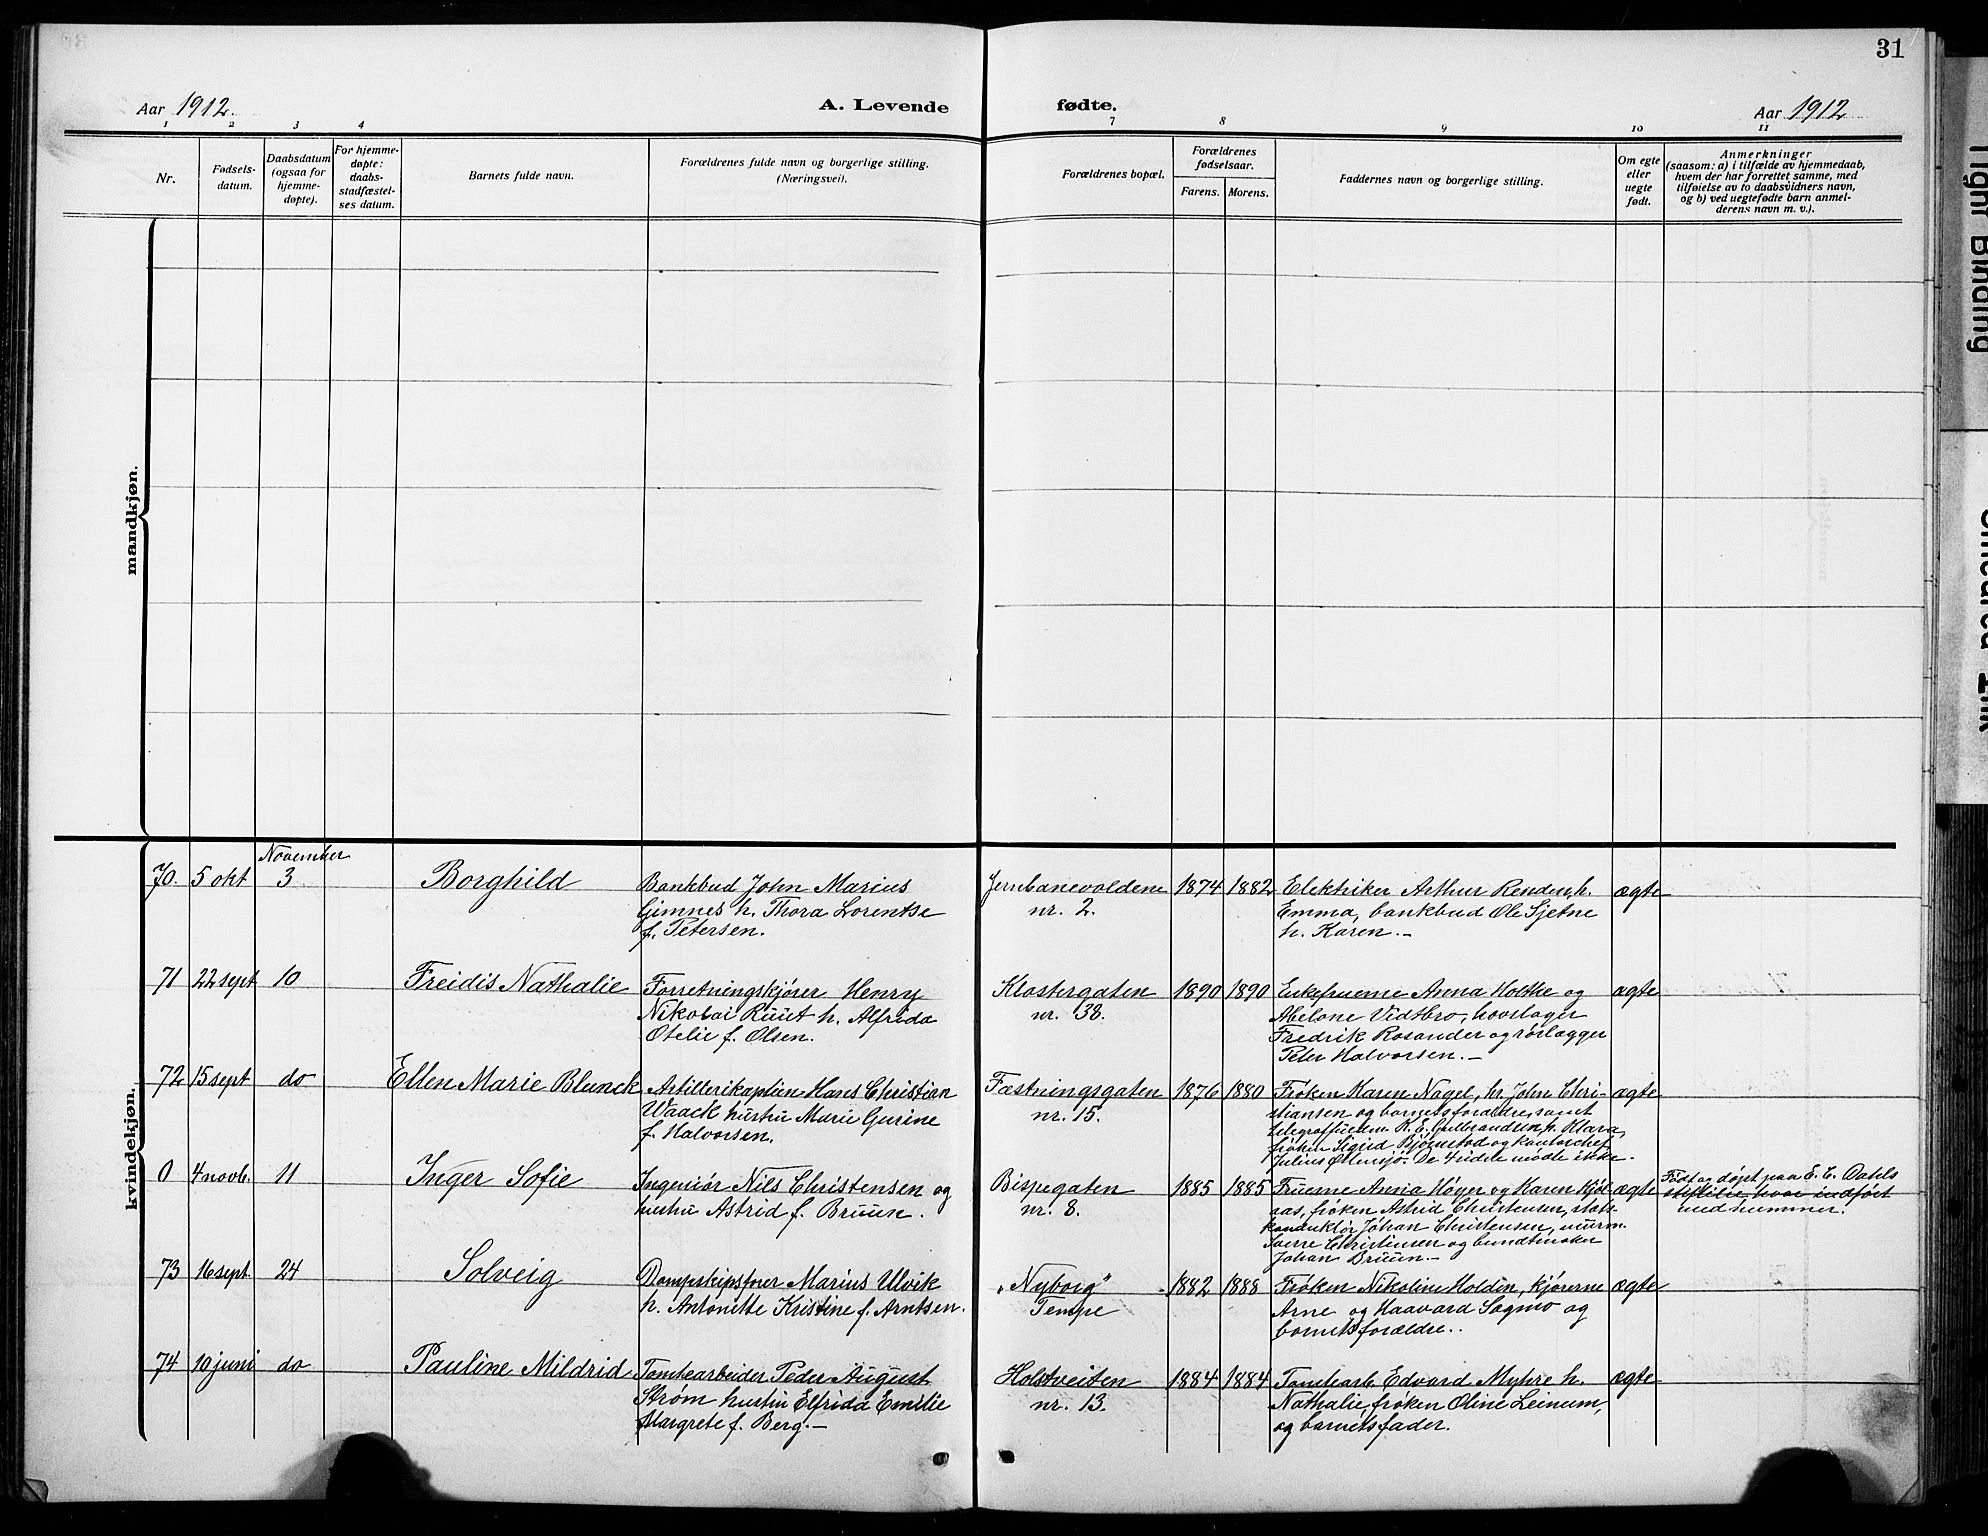 31
Aar 1912.
A. Levende
fødte.
Aar 1912
1 2 3 4
7 8 9 10 11
Nr.
Fødsels-
datum.
Daabsdatum
(ogsaa for
hjemme-
døpte).
For hjemme-
døpte:
daabs-
stadfæstel-
ses datum.
Barnets fulde navn.
Forældrenes fulde navn og borgerlige stilling.
(Næringsvei).
Forældrenes bopæl.
Forældrenes
fødselsaar.
Farens. Morens.
Faddernes navn og borgerlige stilling.
Om egte
eller
uegte
født.
Anmerkninger
(saasom: a) i tilfælde av hjemmedaab,
hvem der har forrettet samme, med
tilføielse av to daabsvidners navn,
og b) ved uegtefødte barn anmel-
derens navn m. v.).
mandkjøn.
kvindekjøn.
November
70. 5 okt 3 Borghild
Bankbud John Marius
Gimnes h. Thora Lorentse
f. Petersen.
Jernbanevoldene
nr. 2.
1874 1882
Elektriker Arthur Renden, h.
Emma, bankbud Ole Sjetne
h. Karen.-
ægte
71 22 sept 10 Freidis Nathalie
Forretningskjører Henry
Nikolai Ruut h. Alfrida
Otelie f. Olsen.
Klostergaten
nr. 38.
1890 1890
Enkefruerne Anna Holthe og
Abelone Vidtbro, hovslager
Fredrik Rosander og rørlægger
Peter Halvorsen.-
ægte
72 15 sept do Ellen Marie Blunck
Artillerikaptein Hans Christian
Waack hustru Marie Gurine
f. Halvorsen.
Fæstningsgaten
nr. 15.
1876 1880
Frøken Karen Nagel, hr. John Chri-
stiansen og barnets forældre, samt
R. E. Gulbrandsen h. Klara,
frøken Sigrid Bjørnstad og kontorchef
Julius De 4 sidste mødte ikke.
ægte
0 4 novb. 11 Inger Sofie
Ingeniør Nils Christensen og
hustru Astrid f. Bruun.
Bispegaten
nr. 8.
1885 1885
Fruerne Anna Høyer og Karen Kjøl-
aas, frøken Astrid Christensen, stats-
konduktør Johan Christensen, murm.
Sverre Christensen og bundtmaker
Johan Bruun.-
ægte
Født og døpt paa E. C. Dahls
stiftelse, hvor indført
med nummer.
73 16 sept 24 Solveig
Dampskipsfører Marius Ulvik
h. Antonette Kristine f. Arntsen.
"Nyborg"
Tempe
1882 1888
Frøken Nikoline Holden, kjørerne
Arne og Haavard Sagmo og
barnets forældre..
ægte
74 10 juni do Pauline Mildrid
Tomtearbeider Peder August
Strøm hustru Elfrida Emilie
Margrete f. Berg.-
Holstveiten
nr. 13.
1884 1884
Tomtearb. Edvard Myhre h.
Nathalie, frøken Oline Leinum,
og barnets fader.
ægte